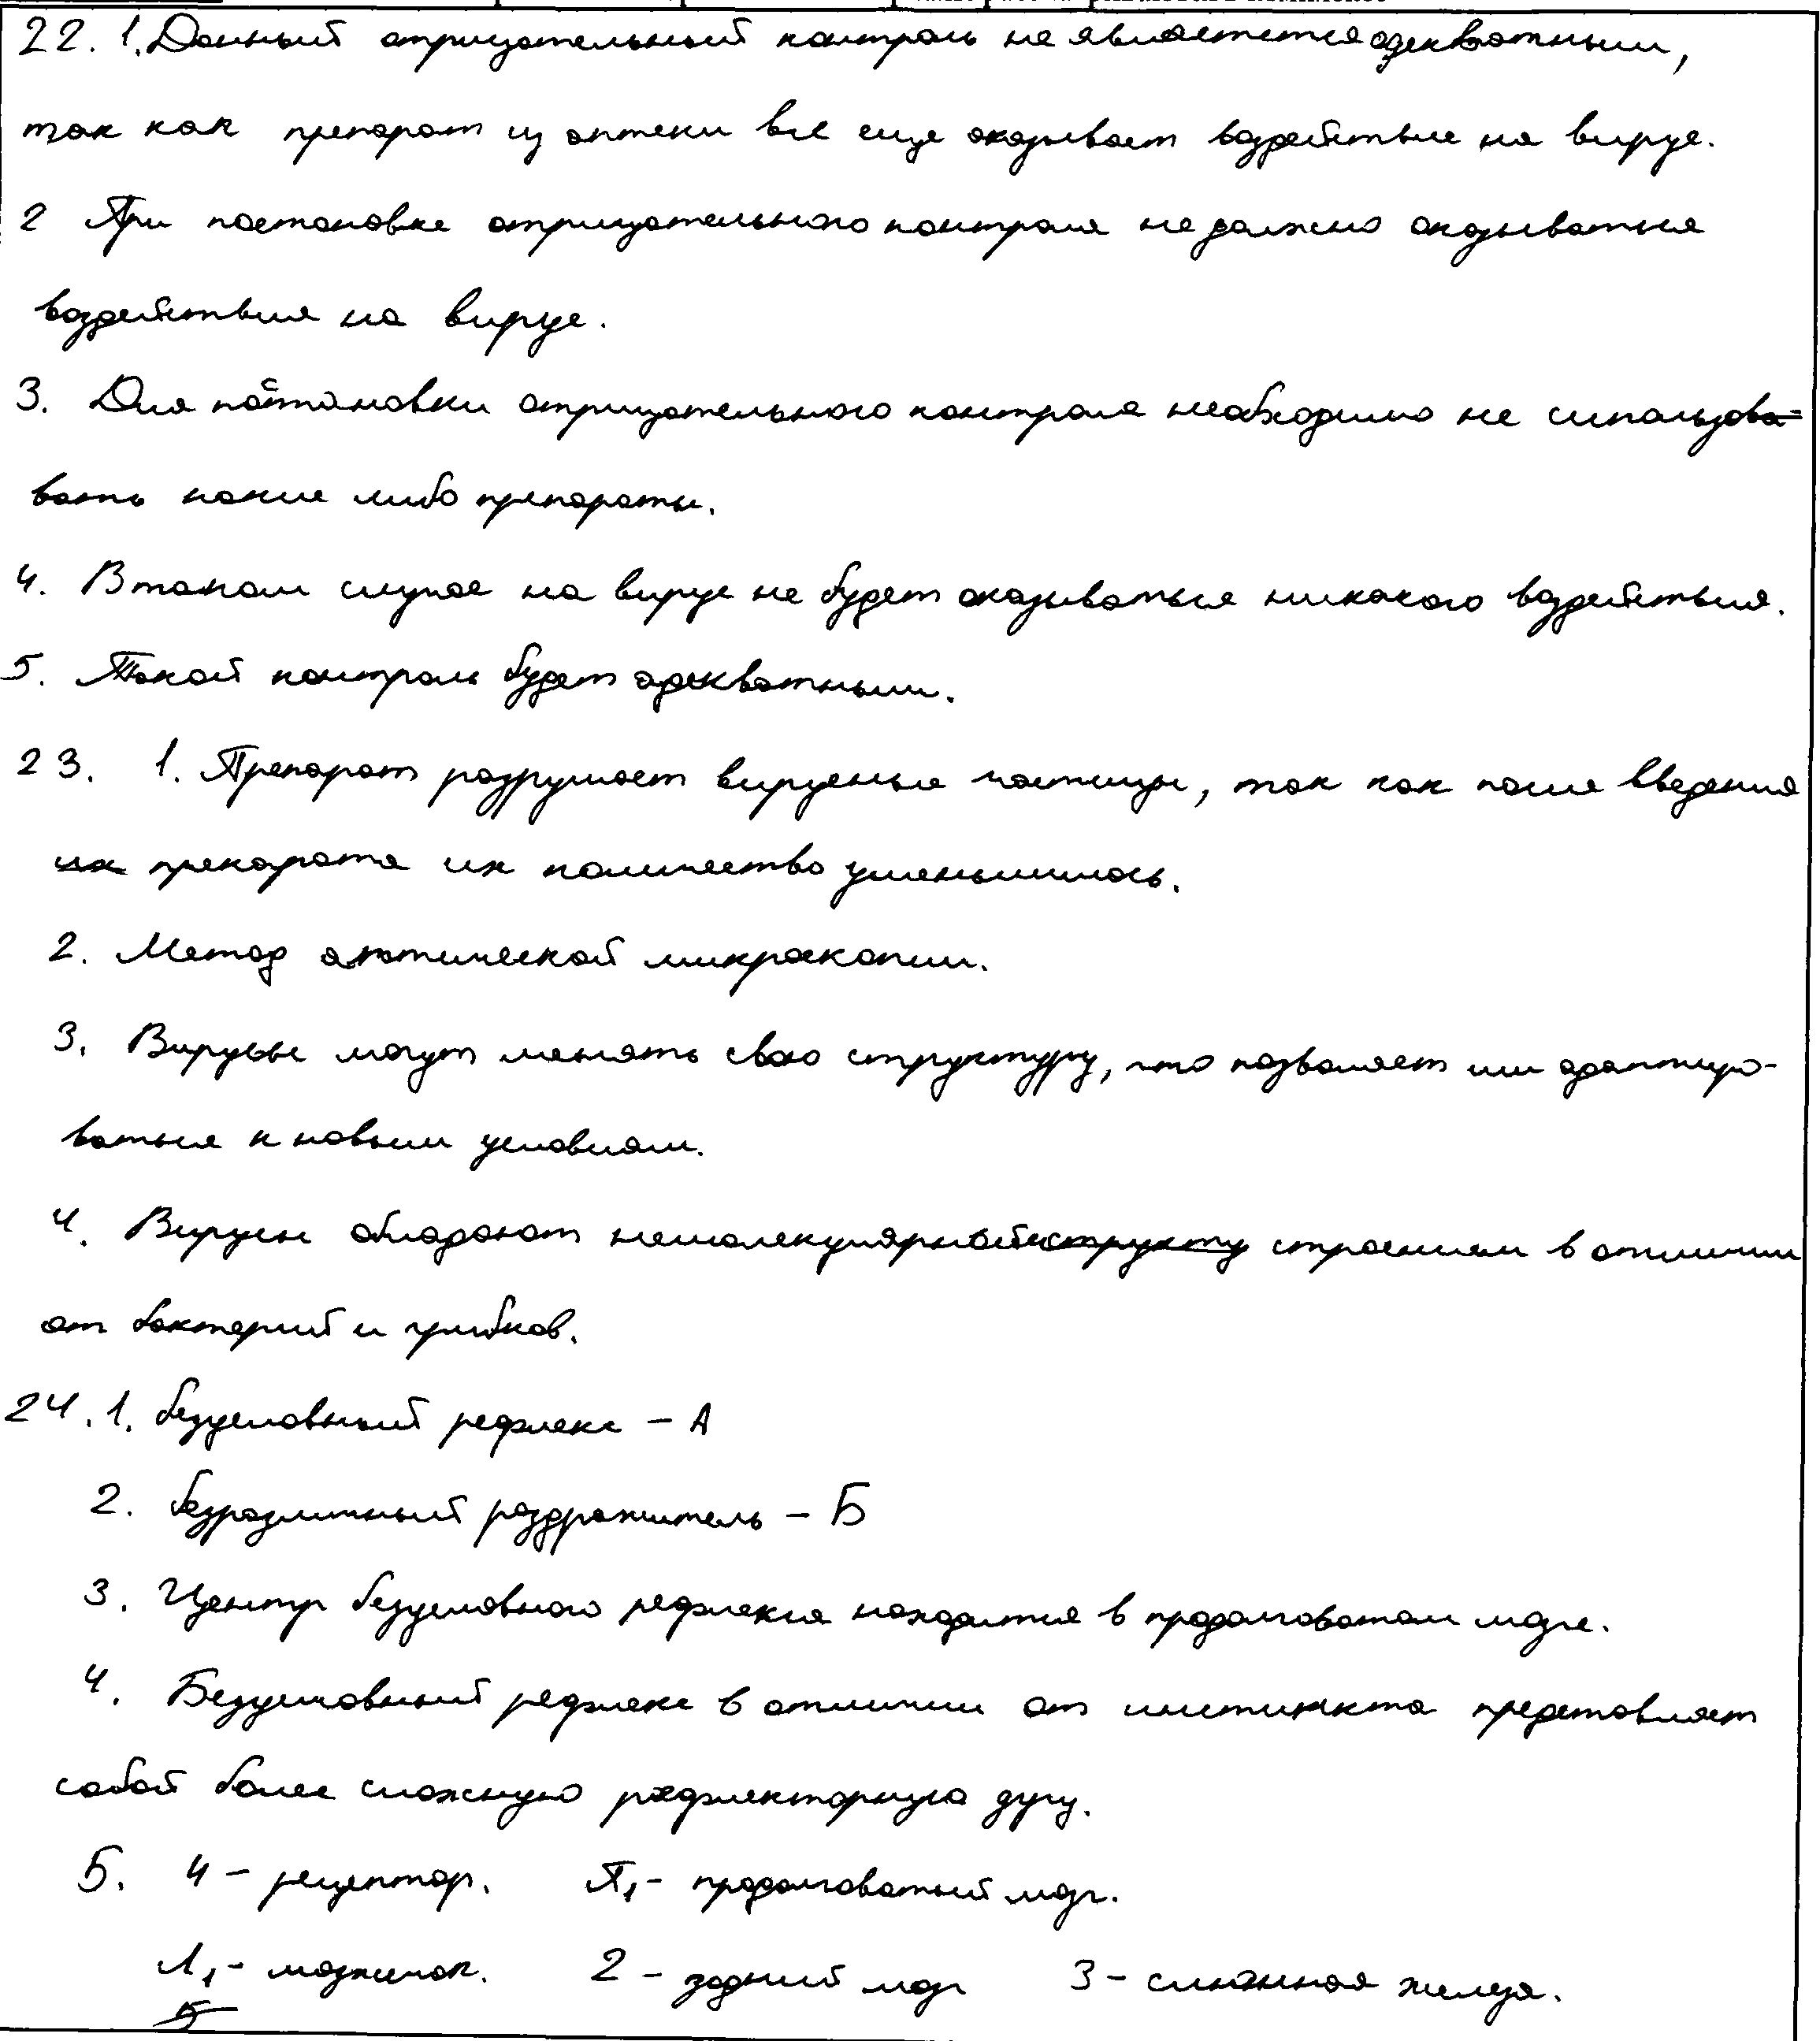 22. 1. Данный отрицательный контроль не является адекватным,
так как препарат из аптеки все еще оказывает воздействие на вирус.
2 При постановке отрицательного контроля не должно оказываться
воздействия на вирус.
3. Для постановки отрицательного контроля необходимо не использова-
вать какие либо препараты.
4. В таком случае на вирус не будет оказываться никакого воздействия.
5. Такой контроль будет адекватным.
23. 1. Препарат разрушает вирусные частицы, так как после введения
их препарата их количество уменьшилось.
2. Метод оптической микроскопии.
3. Вирусы могут менять свою структуру, что позволяет им адаптиро-
ваться к новым условиям.
4. Вирусы обладают немолекулярной структу строением в отличии
от бактерий и грибков.
24. 1. безусловный рефлекс – А
2. безразличный раздражитель – Б
3. Центр безусловного рефлекса находится в продолговатом мозге.
4. Безусловный рефлекс в отличии от инстинкта представляет
собой более сложную рефлекторную дугу.
5. 4 – рецептор. П₁ – продолговатый мозг.
Л₁ – мозжечок. 2 – задний мозг 3 – слюнная железа.
5